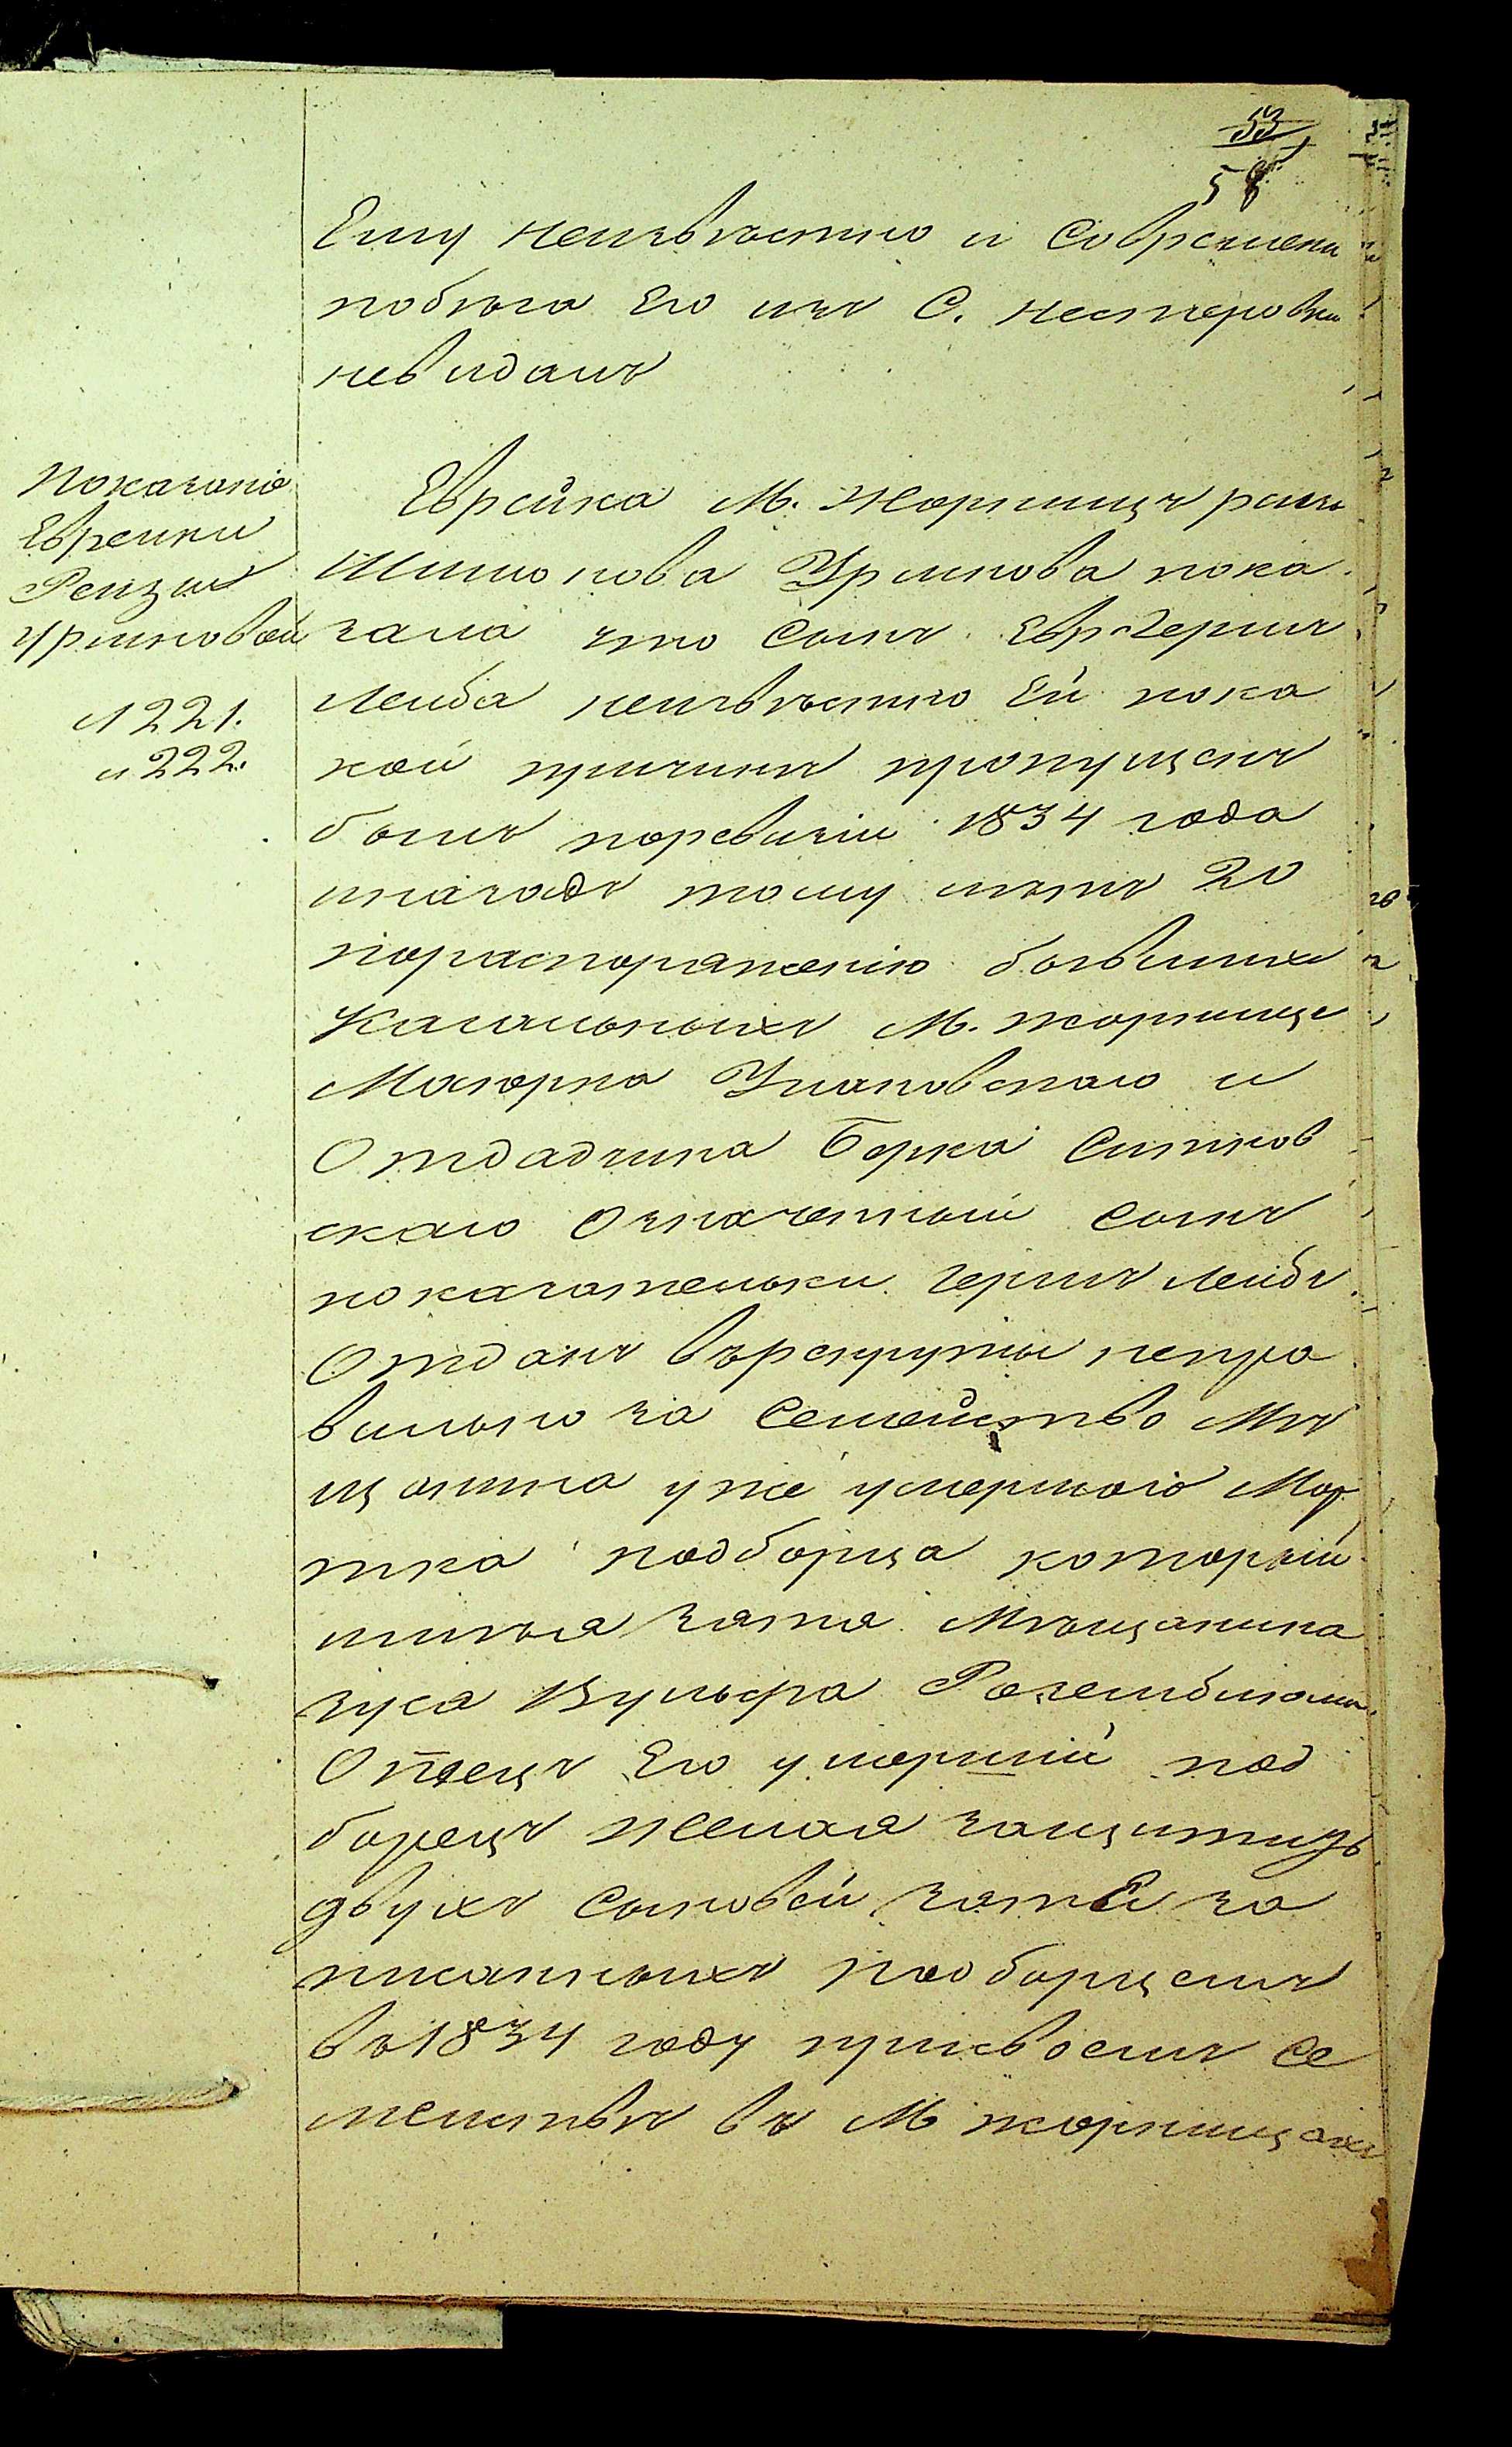 53
58
Ему неизвѣстно и Современи
побѣга Его изъ С. Нестеровки
невидалъ
Показаніе
Еврейки
Рейзи
Уриновой
л 221.
и 222.
Еврейка М. Жорнищъ
Шимонова Уринова пока
зала что Сынъ Ев. Гершъ
Лейба неизвѣстно Ей пока
кой причинѣ пропущенъ
былъ поревизіи 1834 года
иназадъ тому лѣтъ 20
пораспоряженію бывшихъ
Кагальныхъ М. жорнище
и
Отдадчика Берка Ситков
скаго Означенный Сынъ
показательки Гершъ Лейбъ
Отданъ върекруты непра
вильно за Семейство Мѣ
щанина уже умершаго Мор
тка подборца который
имѣя зятя Мѣщанина
Зуся Вульфа
Отецъ Его умершій под
борецъ желая защитить
двухъ Сыновей зятя за
писанныхъ подборцемъ
въ 1834 году присвоемъ Се
мействѣ въ М жорнищахъ